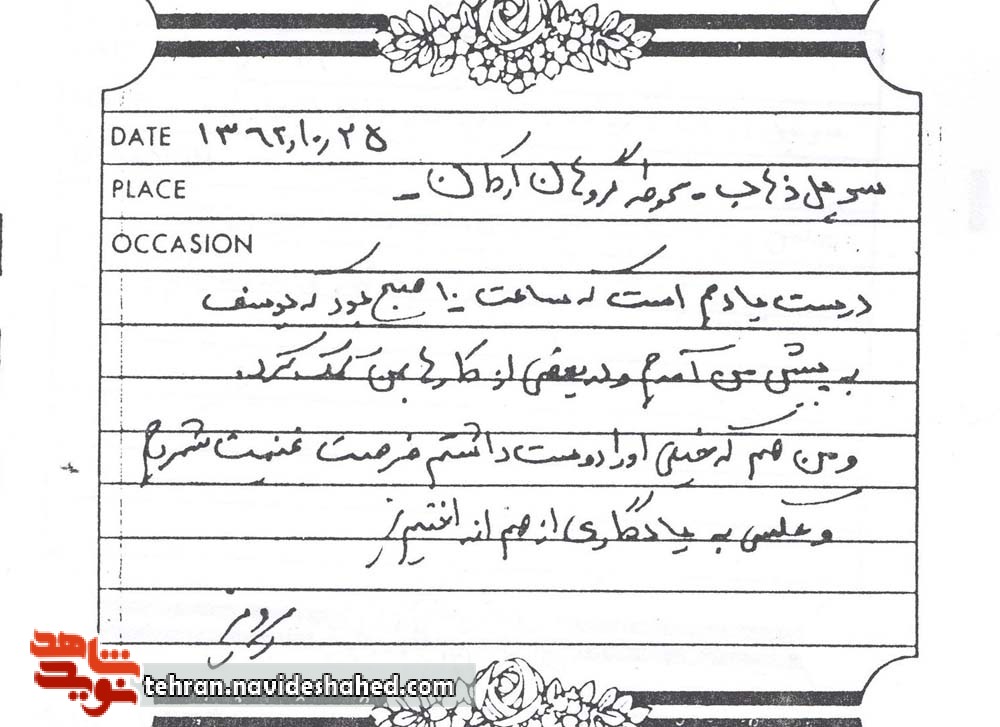 DATE ۱۳۶۲ر۱۰ر۲۵
PLACE سرپل ذهاب - محوطه گروهان ارکان -
OCCASION
درست یادم است که ساعت ۱۰ صبح بود که یوسف
به پیش من آمد و در بعضی از کارها بمن کمک کرد.
و من هم که خیلی او را دوست داشتم فرصت غنیمت شمردم
و عکسی به یادگاری از هم انداختیم
نوید شاهد
tehran.navideshahed.com